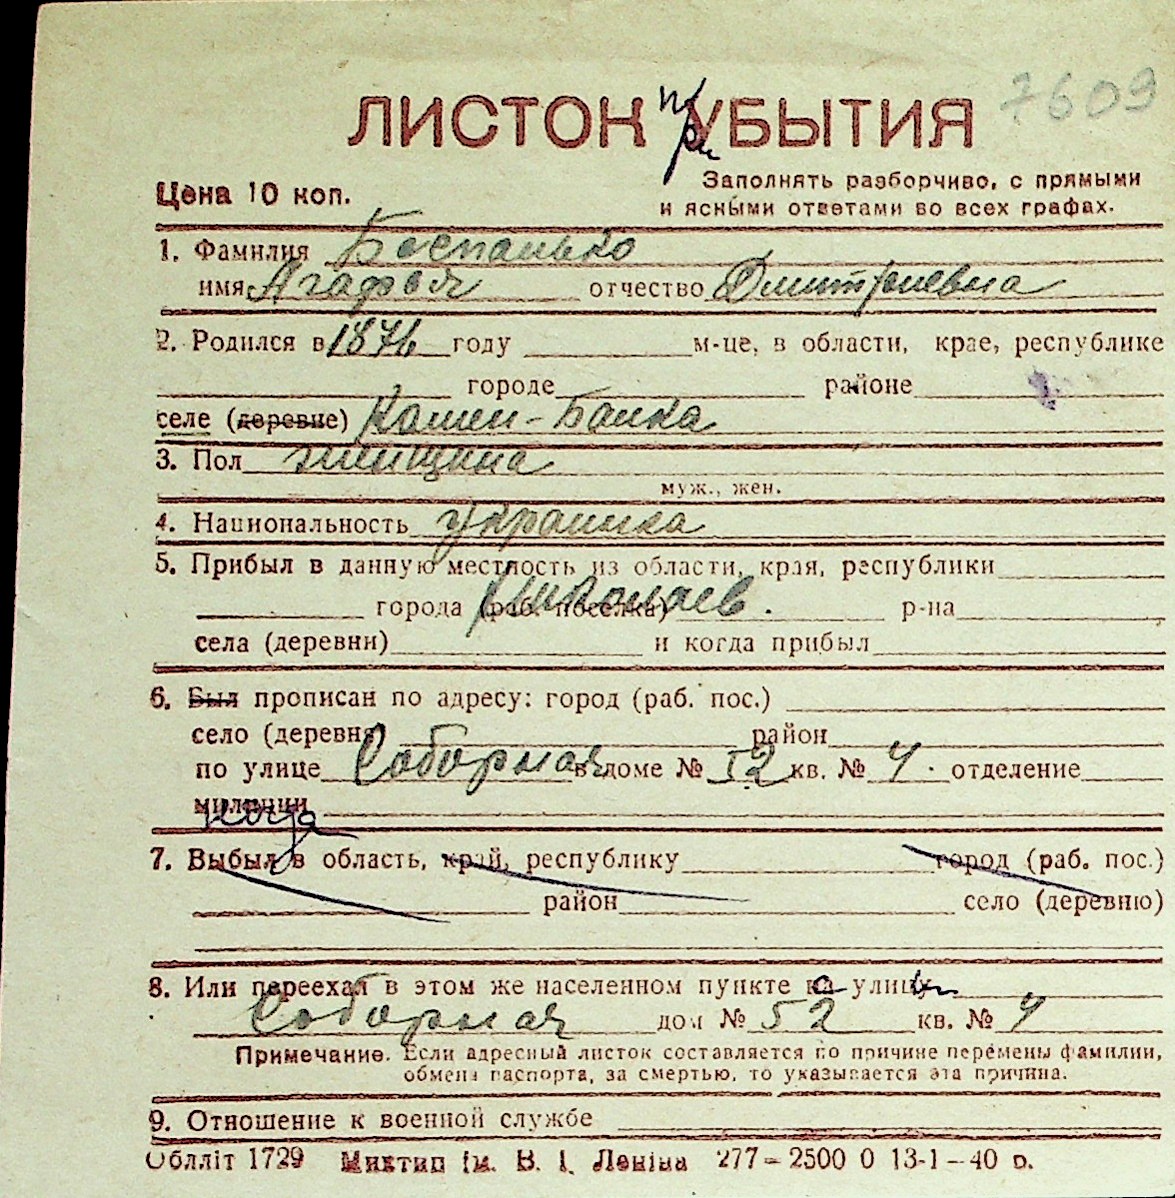 7609
ЛИСТОК при УБЫТИЯ
Цена 10 коп.
Заполнять разборчиво, с прямыми
и ясными ответами во всех графах.
1. Фамилия Беспалько
имя Агафья отчество Дмитриевна
2. Родился в 1876 году м-це, в области, крае, республике
городе районе
селе (деревне) Камен-Балка
3. Пол женщина
муж., жен.
4. Национальность украинка
5. Прибыл в данную местность из области, края, республики
города (раб. поселка) Николаев. р-на
села (деревни) и когда прибыл
6. Был прописан по адресу: город (раб. пос.)
село (деревня) район
по улице Соборная в доме № 52 кв. № 4. отделение
милиции
7. Выбыл в область, край, республику город (раб. пос.)
район село (деревню)
8. Или переехал в этом же населенном пункте с улицы
Соборная дом № 52 кв. № 4
Примечание. Если адресный листок составляется по причине перемены фамилии,
обмена паспорта, за смертью, то указывается эта причина.
9. Отношение к военной службе
Облліт 1729 Миктип ім. В. І. Леніна 277-2500 0 13-1-40 р.